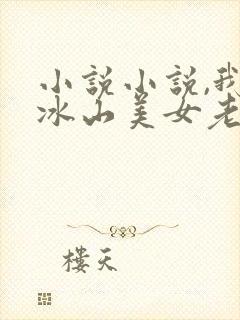 小説小説,我
冰山美女老
樓天